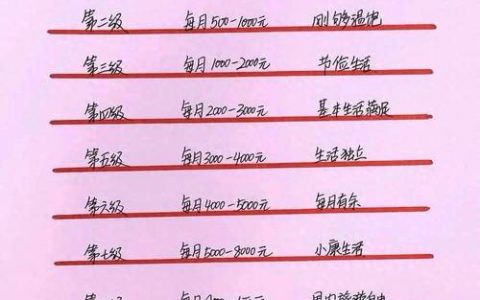 第二级 每月500-1000元 刚够温饱
第三级 每月1000-2000元 节俭生活
第四级 每月2000-3000元 基本生活满足
第五级 每月3000-4000元 生活独立
第六级 每月4000-5000元 每月有余
第七级 每月5000-8000元 小康生活